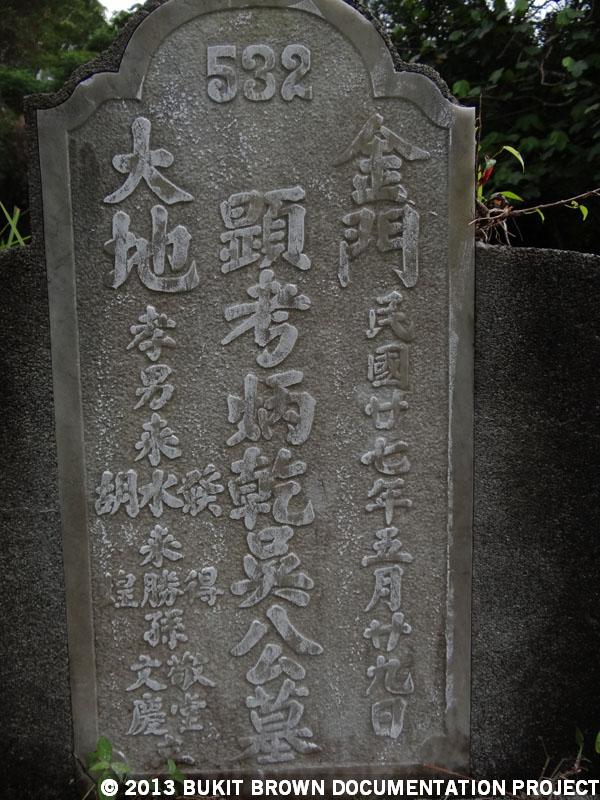 532
金門
民國廿七年五月廿九日
顯考炳乾吳公墓
大地
孝男來
水
胡
永
得
勝
煌
孫
敬堂
文慶
© 2013 BUKIT BROWN DOCUMENTATION PROJECT